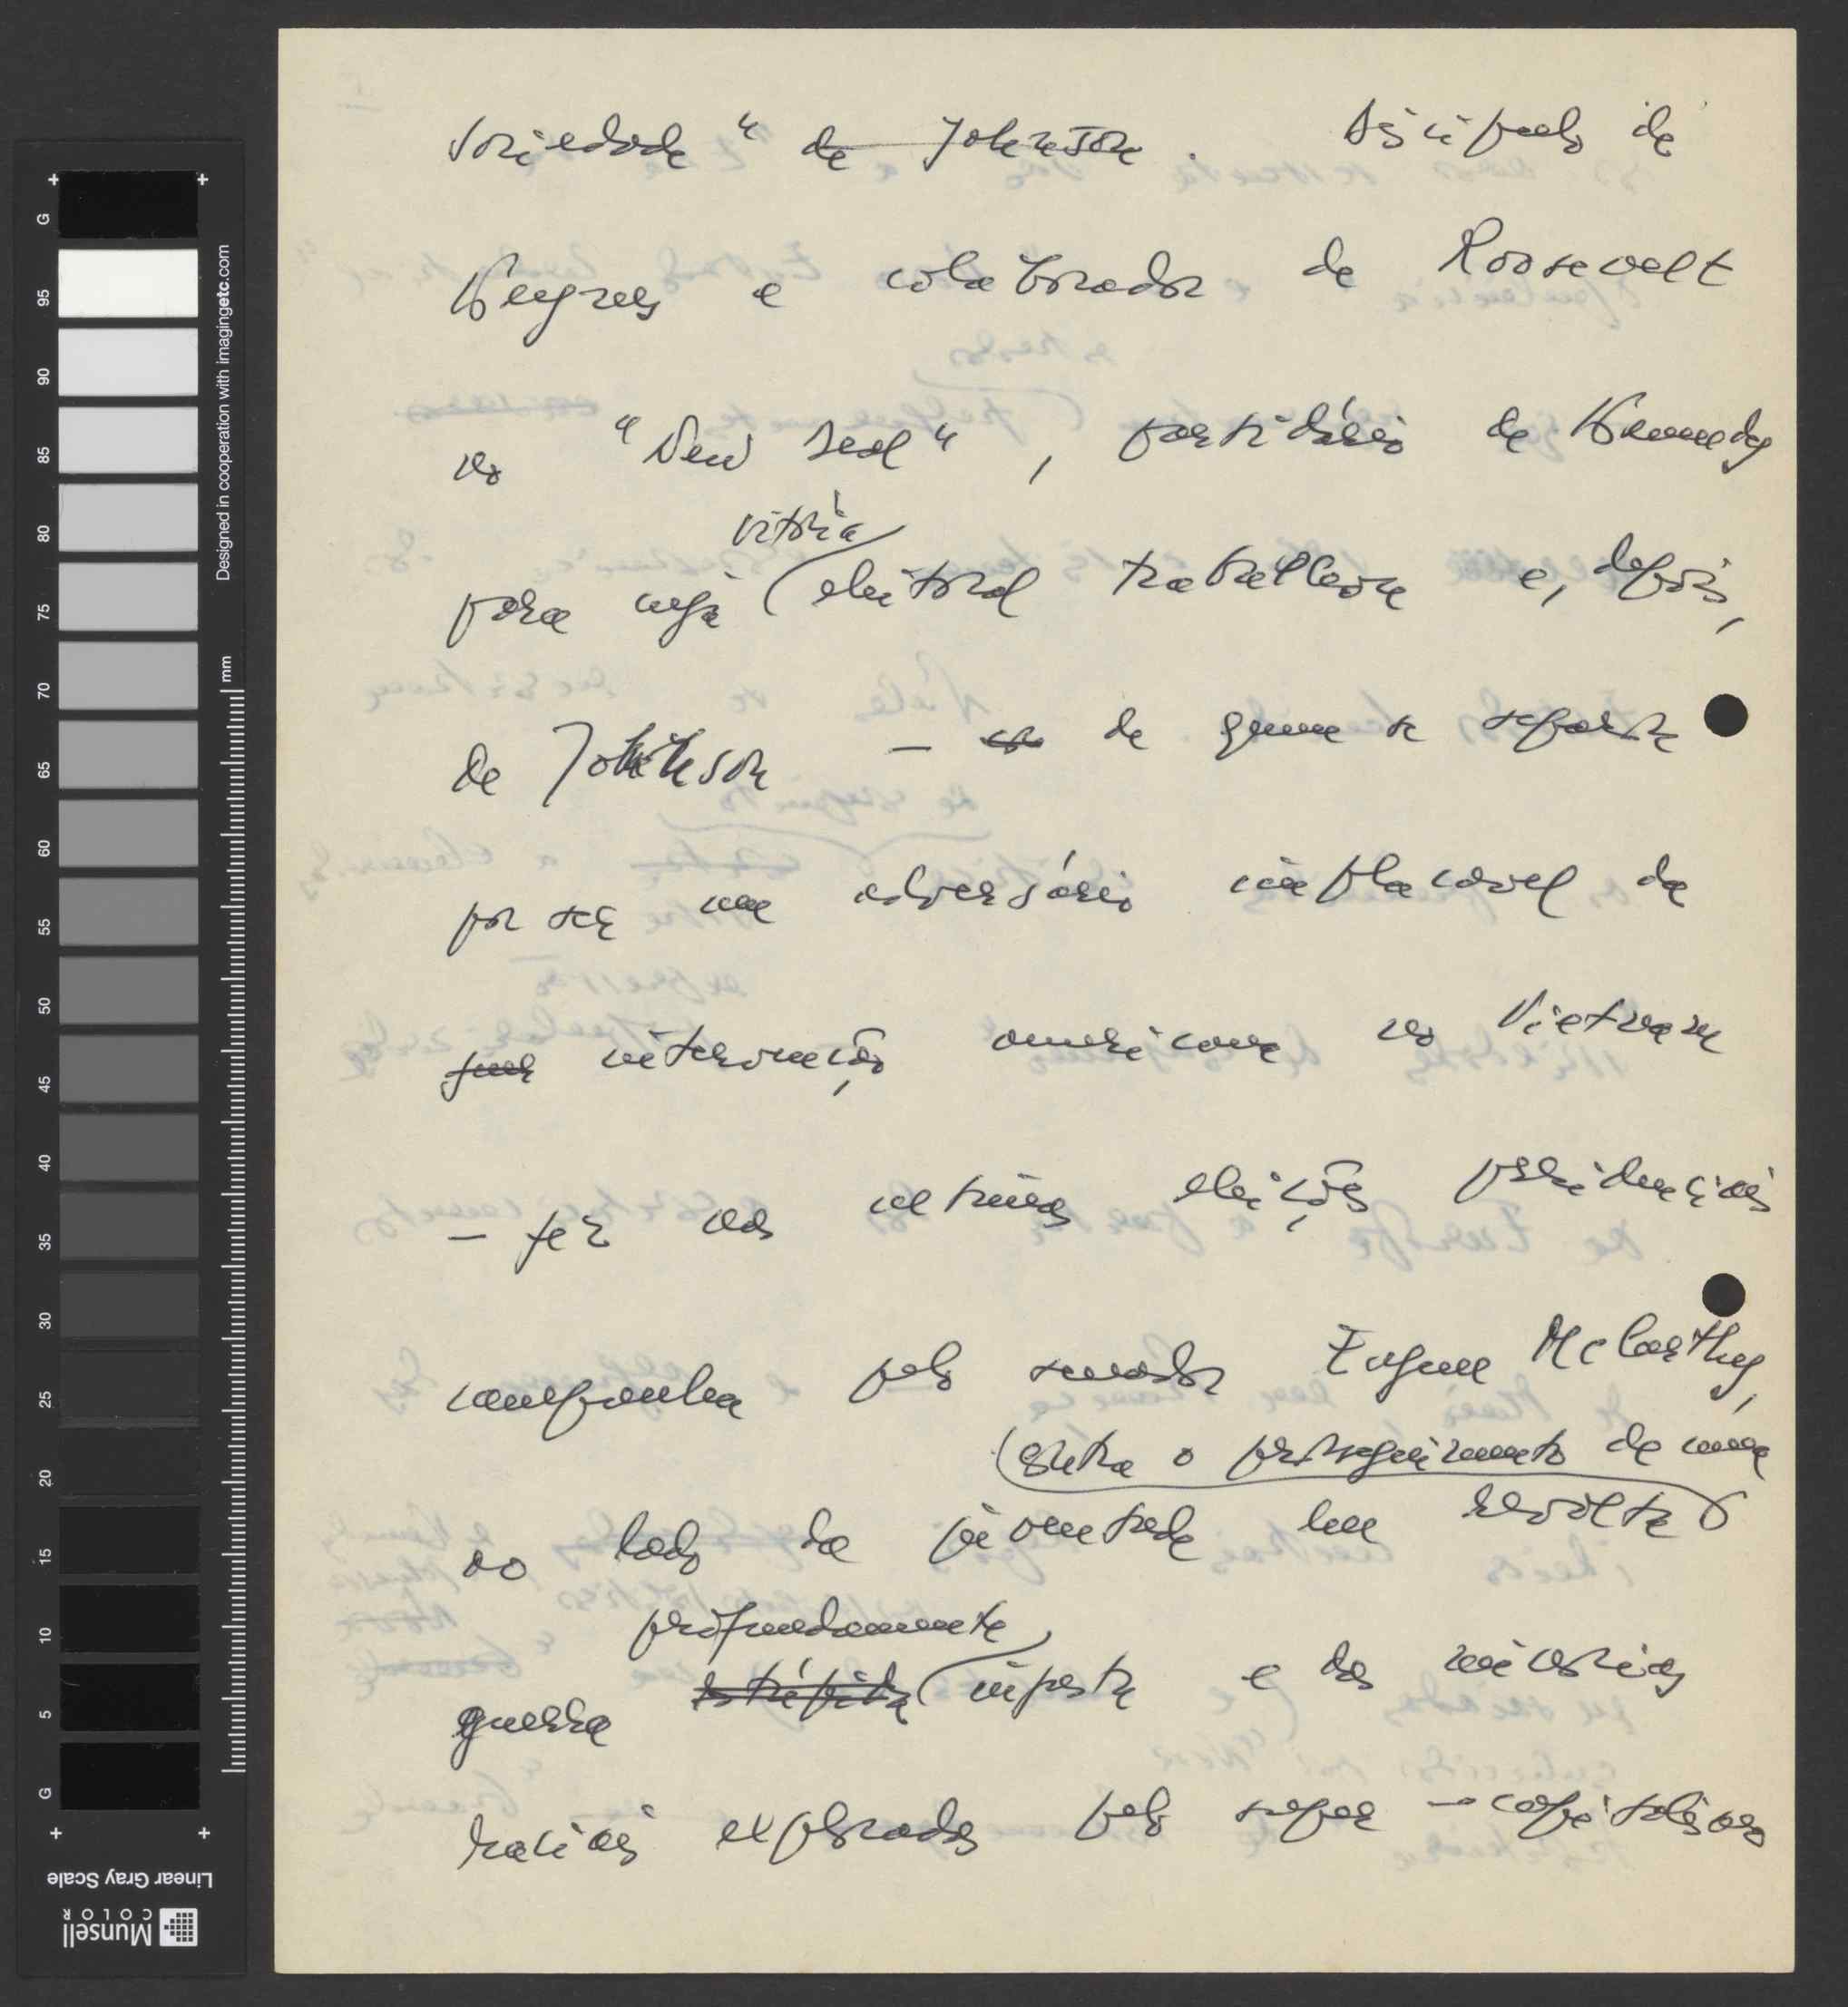 sociedade" de Johnson. Discípulo de
Keynes e colaborador de Roosevelt
no "New Deal", partidário de Kennedy
vitória
para cuja eleitoral trabalhou e, depois,
de Johnson – de quem se separa
por ser um adversário implacavel da
intervenção americana no Vietnam
– fez nas ultimas eleições presidenciais
campanha pelo senador Eugene McCarthy,
contra o prosseguimento de uma
ao lado da juventude em revolta
profundamente
guerra estúpida injusta e das minorias
raciais exploradas pelo super-capitalismo
G
95
90
85
80
75
70
65
60
55
50
45
40
35
30
25
20
15
10
5
G
Designed in cooperation with imagingetc.com
mm
Linear Gray Scale
Munsell
COLOR